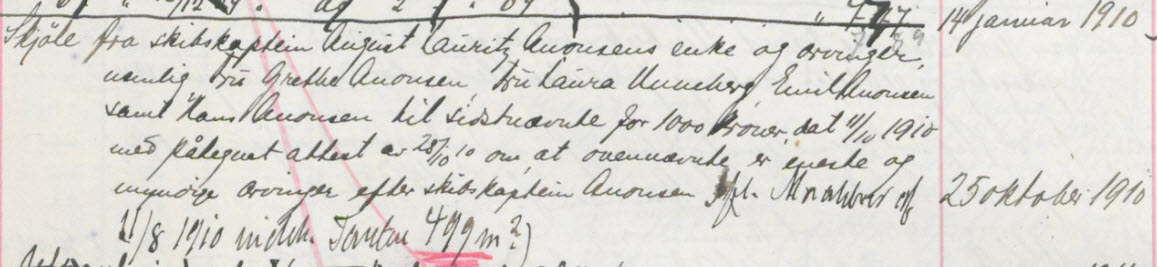 14 januar 1910
Skjöte fra skibskaptein August Lauritz Anonsens enke og arvinger,
nemlig fru Grethe Anonsen, fru Laura Unneberg, Emil Anonsen
samt Hans Anonsen til sidstnævnte for 1000 kroner, dat 11/10 1910
med påtegnet attest av 28/10 10 om, at ovennævnte er eneste og
myndige arvinger efter skibskaptein Anonsen jfr. af 25 oktober 1910
11/8 1910 Tomten 499 m²)